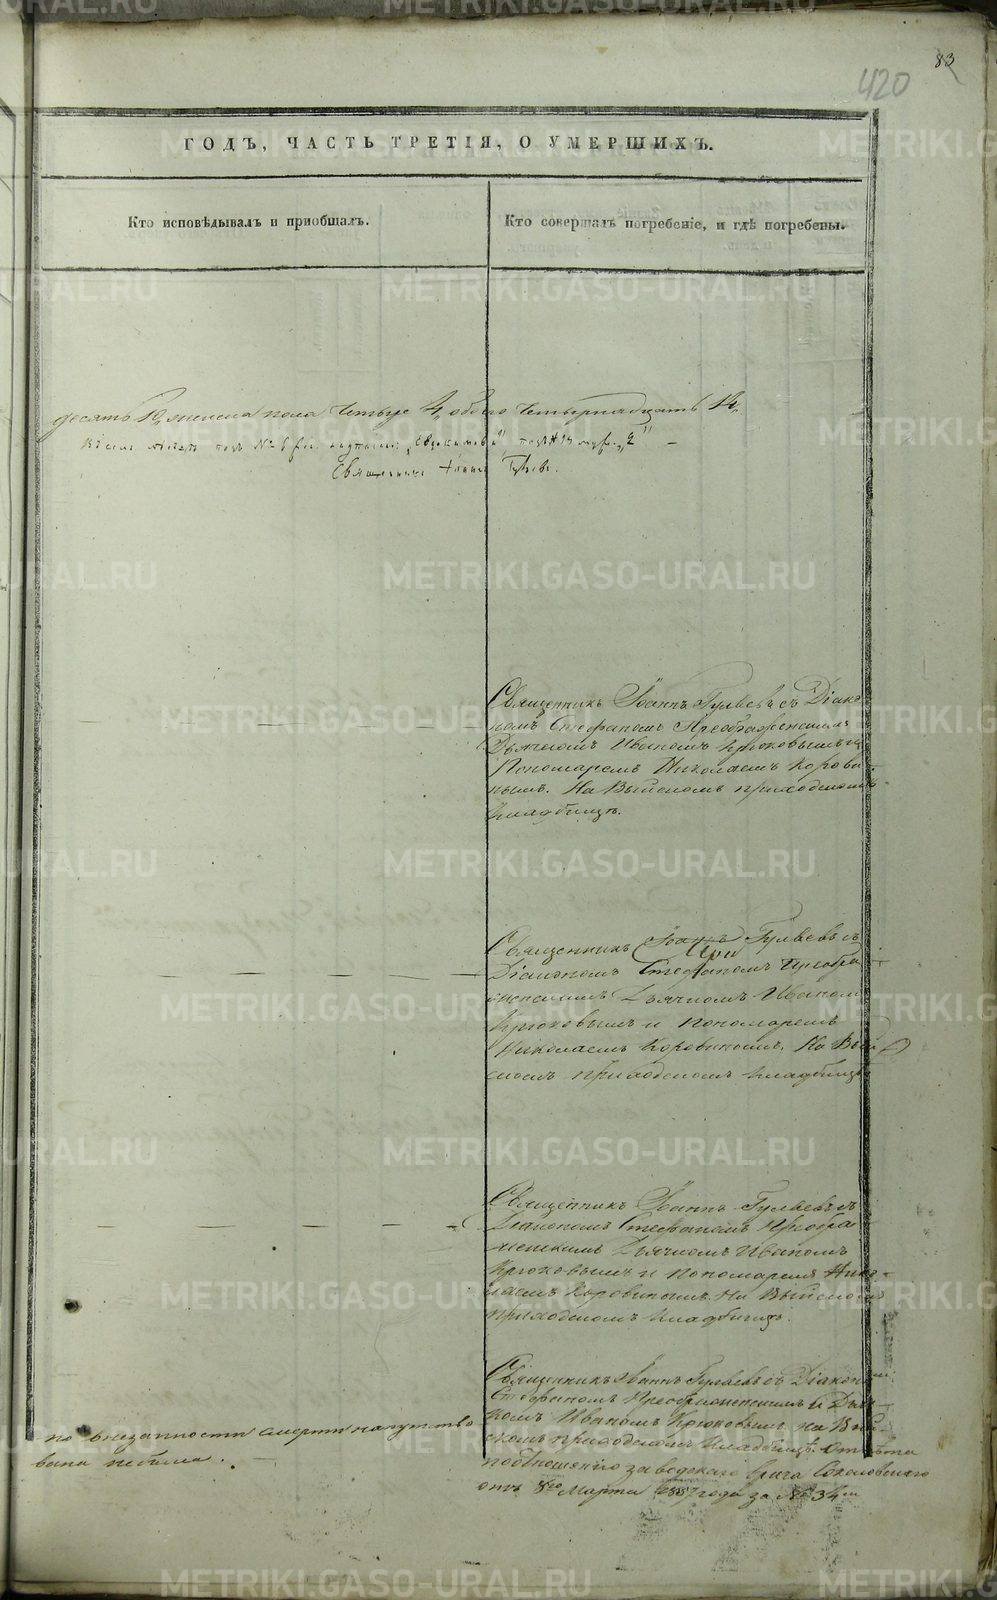 METRIKI.GASO-URAL.RU
83
420
ГОДЪ, ЧАСТЬ ТРЕТІЯ, О УМЕРШИХЪ.
Кто исповѣдывалъ и приобщалъ.
Кто совершалъ погребеніе, и гдѣ погребены.
десять 10, женска пола четыре 4, обоего четырнадцать 14.
Священникъ Іоаннъ Гуляевъ.
Священникъ Іоаннъ Гуляевъ съ Діако-
номъ Стефаномъ Преображенскимъ
Дьячкомъ Иваномъ Крюковымъ и
Пономаремъ Николаемъ Корови-
нымъ. На Выйскомъ приходскомъ
кладбищѣ.
Священникъ Іоаннъ Гуляевъ съ
Діакономъ Стефаномъ Преобра-
женскимъ Дьячкомъ Иваномъ
Крюковымъ и Пономаремъ
Николаемъ Коровинымъ. На Вый-
скомъ приходскомъ кладбищѣ
Священникъ Іоаннъ Гуляевъ съ
Діакономъ Стефаномъ Преобра-
женскимъ Дьячкомъ Иваномъ
Крюковымъ и Пономаремъ Нико-
лаемъ Коровинымъ. На Выйскомъ
приходскомъ кладбищѣ.
по внезапности смерти напутство
вана небыла.
Священникъ Іоаннъ Гуляевъ съ Діакон
Стефаномъ Преображенскимъ и Дьяч-
комъ Иваномъ Крюковымъ на Вый-
скомъ приходскомъ кладбищѣ.
по отношенію заводскаго врача Соколовскаго
отъ 8го Марта 1857 года за № 34м